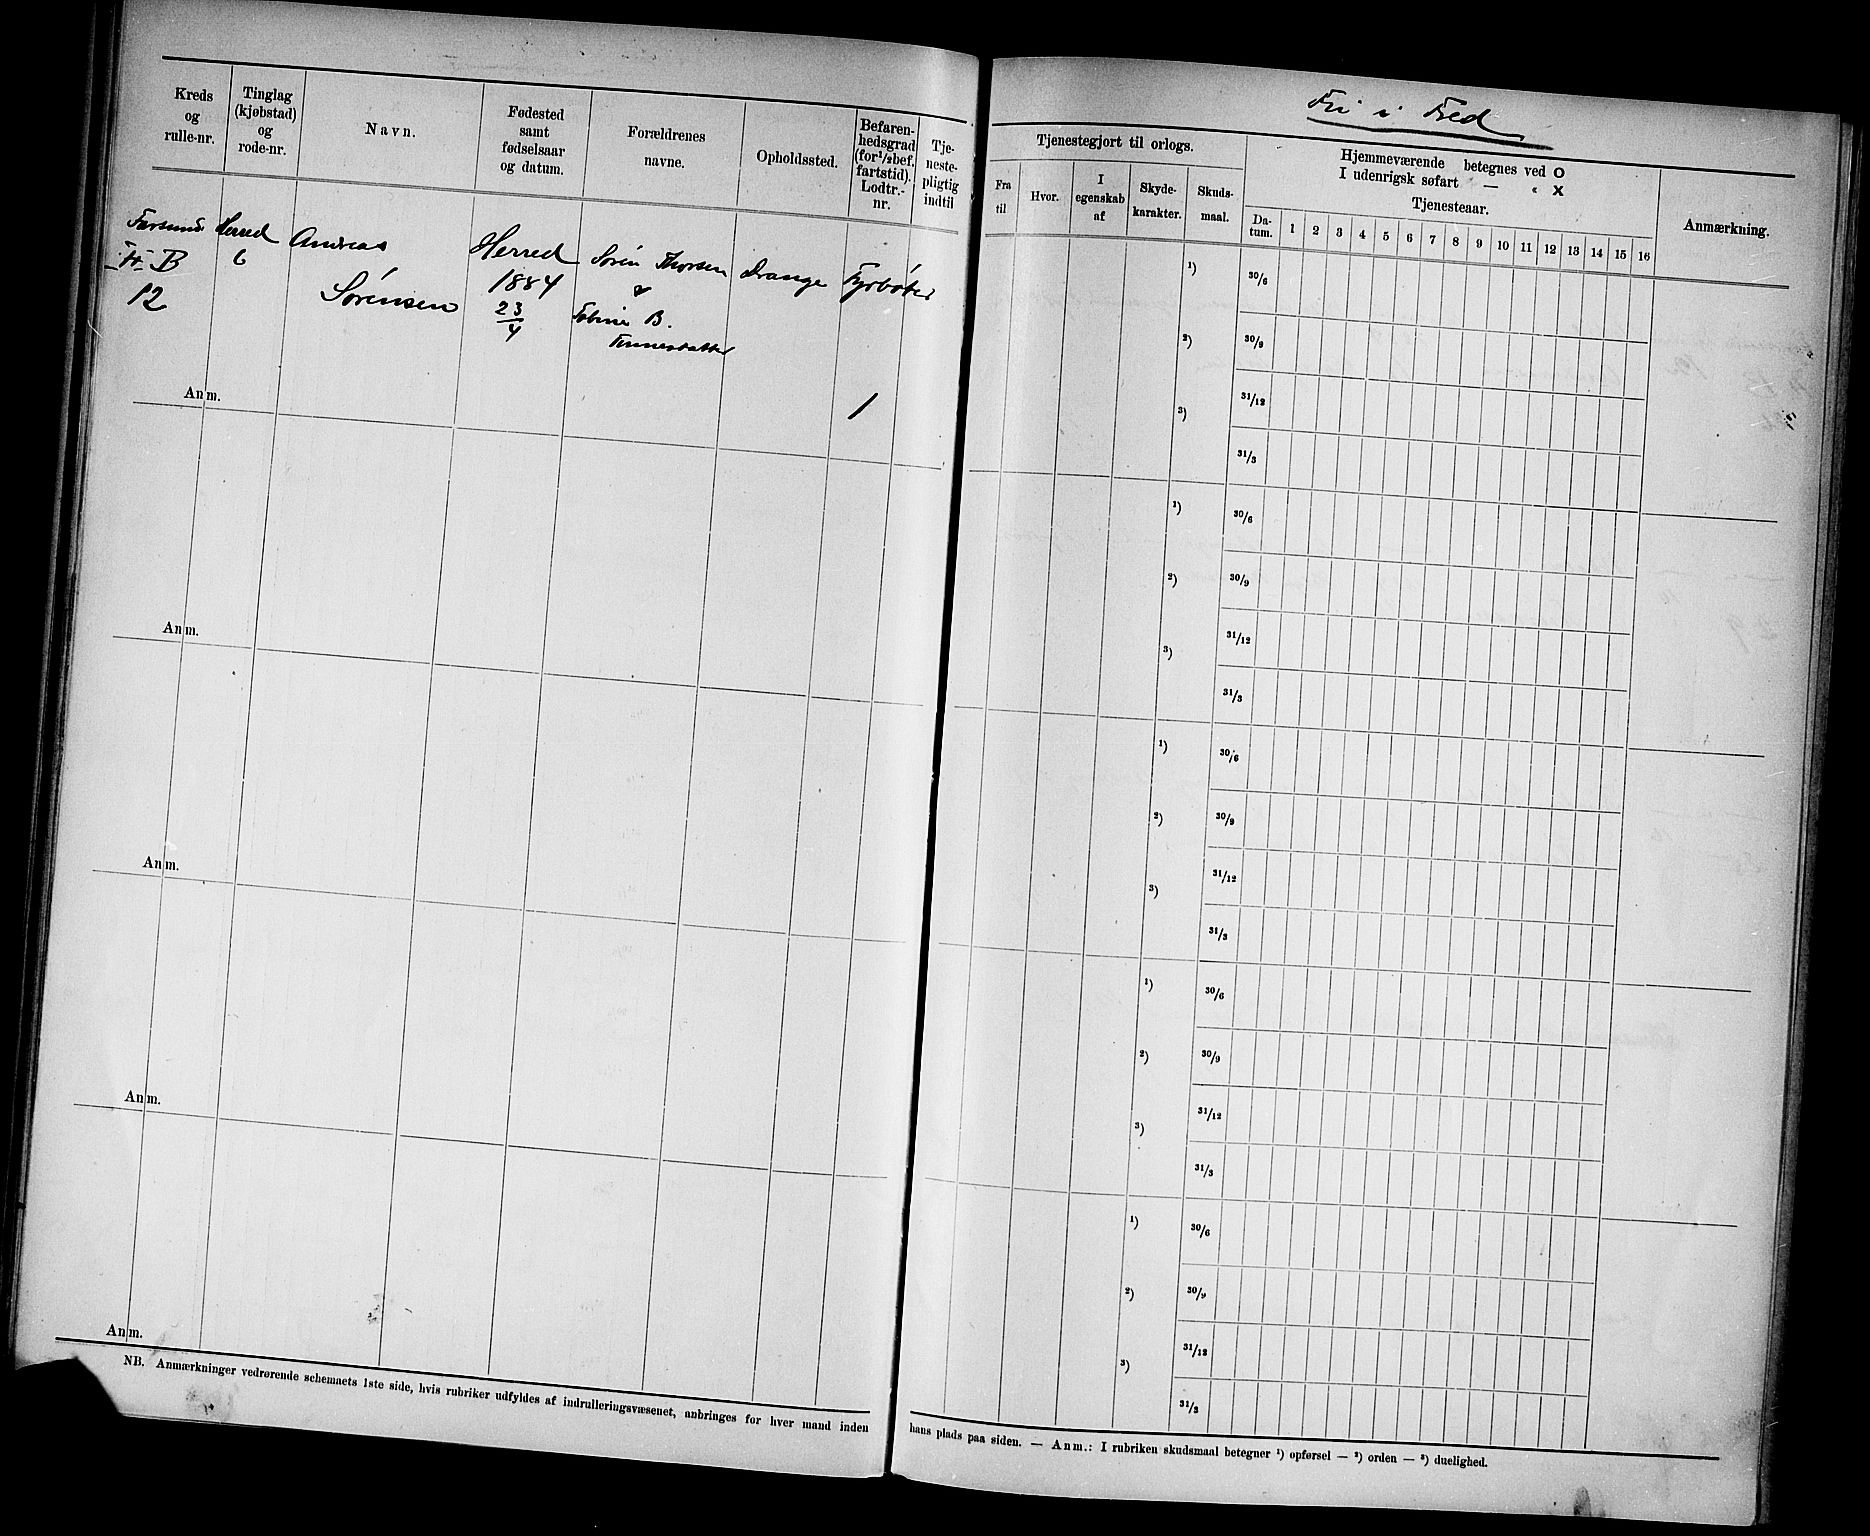 Kreds
og
rulle-nr.
Tinglag
(kjøbstad)
og
rode-nr.
Navn.
Fødested
samt
fødselsaar
og datum.
Forældrenes
navne.
Opholdssted.
Befaren-
hedsgrad
(for ½ bef.
fartstid).
Lodtr.-
nr.
Tje-
neste-
pligtig
indtil
Farsund
B
12
Herred
6
Andreas
Sørensen
Herred
1884
23/4
Søren Thorsen
&
B.
Drange
Fyrbøter
1
Anm.
Anm.
Anm.
Anm.
Anm.
NB. Anmærkninger vedrørende schemaets 1ste side, hvis rubriker udfyldes af indrulleringsvæsenet, anbringes for hver mand inden
Fri i Fred
Tjenestegjort til orlogs.
Fra
til
Hvor.
I
egenskab
af
Skyde-
karakter.
Skuds-
maal.
Hjemmeværende betegnes ved O
I udenrigsk søfart — " X
Tjenesteaar.
Da-
tum.
1 2 3 4 5 6 7 8 9 10 11 12 13 14 15 16
Anmærkning.
1) 30/6
2) 30/9
31/12
3)
31/3
1) 30/6
2) 30/9
31/12
3)
31/3
1) 30/6
2) 30/9
31/12
3)
31/3
1) 30/6
2) 30/9
31/12
3)
31/3
1) 30/6
2) 30/9
31/12
3)
31/3
hans plads paa siden. — Anm.: I rubriken skudsmaal betegner 1) opførsel — 2) orden — 3) duelighed.